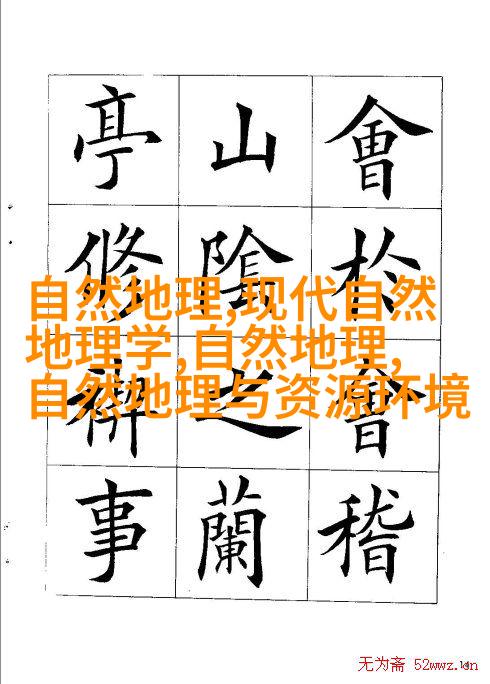 會於會稽
山陰之蘭
亭修禊事
自然地理,现代自然
地理学,自然地理,
自然地理与资源环境
无为斋 52wwz.cn